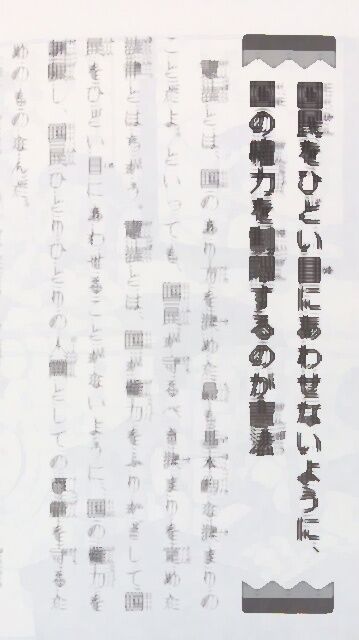 国民をひどい目にあわせないように、
国の権力を制限するのが憲法
憲法とは、国のあり方を決めた最も基本的な決まりの
ことだよ。といっても、国民が守るべき決まりを定めた
法律とはちがう。憲法とは、国が権力をふりかざして国
民をひどい目にあわせることがないように、国の権力を
制限し、国民ひとりひとりの人間としての権利を守るた
めのものなんだ。